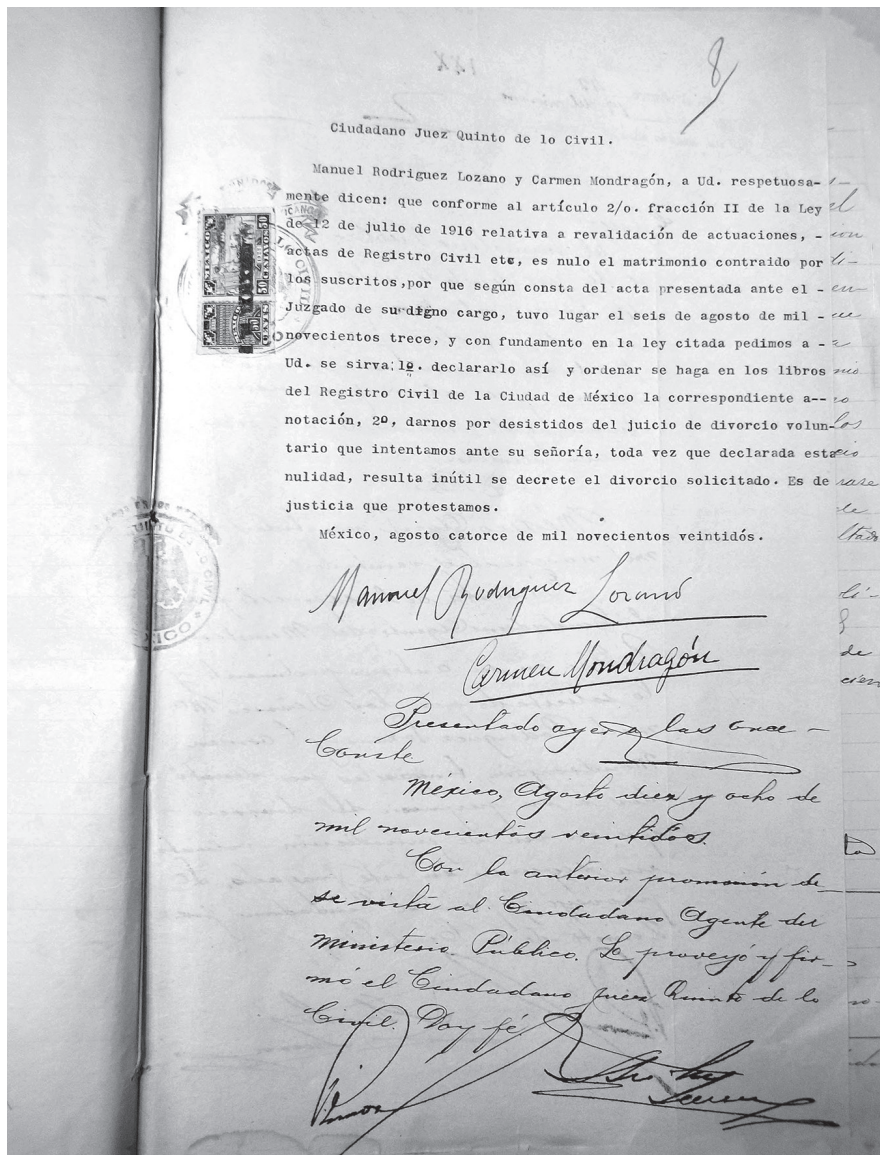 8
Ciudadano Juez Quinto de lo Civil.
Manuel Rodriguez Lozano y Carmen Mondragón, a Ud. respetuosa-
mente dicen: que conforme al artículo 2/o. fracción II de la Ley
de 12 de julio de 1916 relativa a revalidación de actuaciones, -
actas de Registro Civil etc, es nulo el matrimonio contraido por
los suscritos,por que según consta del acta presentada ante el -
Juzgado de su digno cargo, tuvo lugar el seis de agosto de mil -
novecientos trece, y con fundamento en la ley citada pedimos a -
Ud. se sirva:1º. declararlo así y ordenar se haga en los libros
del Registro Civil de la Ciudad de México la correspondiente a--
notación, 2º, darnos por desistidos del juicio de divorcio volun-
tario que intentamos ante su señoría, toda vez que declarada esta
nulidad, resulta inútil se decrete el divorcio solicitado. Es de
justicia que protestamos.
México, agosto catorce de mil novecientos veintidós.
Manuel Rodriguez Lozano
Carmen Mondragón
Presentado ayer a las once -
Conste
México, Agosto diez y ocho de
mil novecientos veintidós.
Con la anterior promoción de-
se vista al Ciudadano Agente del
Ministerio Público. Lo proveyó y fir-
mó el Ciudadano Juez Quinto de lo
Civil. Doy fé